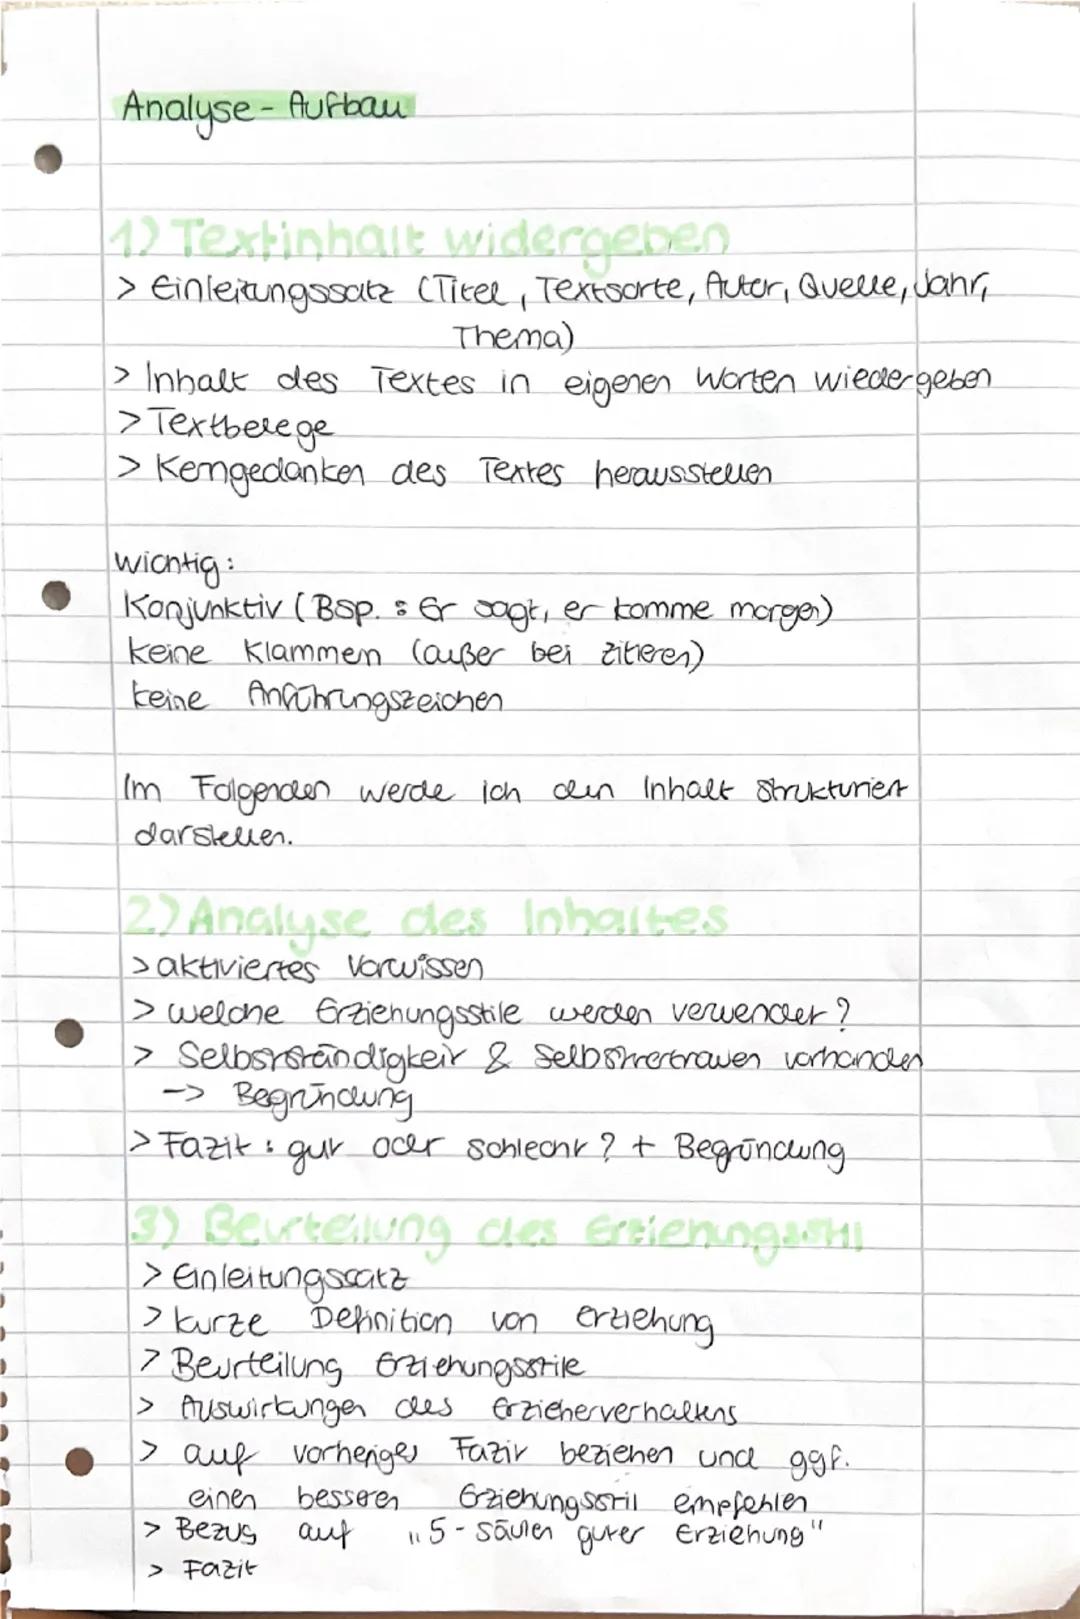 Analyse - Aufbau
1) Textinhalt widergeben
> Einleitungssatz (Titel, Textsorte, Autor, Quelle, Jahr,
Thema)
> Inhalt des Textes in eigenen Worten wiedergeben
> Textbelege
> Kerngedanken des Textes herausstellen
Wichtig:
Konjunktiv (Bsp.: Er sagt, er komme morgen)
keine Klammern (außer bei zitieren)
keine Anführungszeichen
Im Folgenden werde ich den Inhalt strukturiert
darstellen.
2) Analyse des Inhaltes
> aktiviertes Vorwissen
> welche Erziehungsstile werden verwendet?
> Selbstständigkeit & Selbstvertrauen vorhanden
-> Begründung
> Fazit: gut oder schlecht? + Begründung
3) Beurteilung des Erziehungsstil
> Einleitungssatz
> kurze Definition von Erziehung
> Beurteilung Erziehungsstile
> Auswirkungen des Erzieherverhaltens
> auf vorheriges Fazit beziehen und ggf.
einen besseren Erziehungsstil empfehlen
> Bezug auf „5-säulen guter Erziehung"
> Fazit